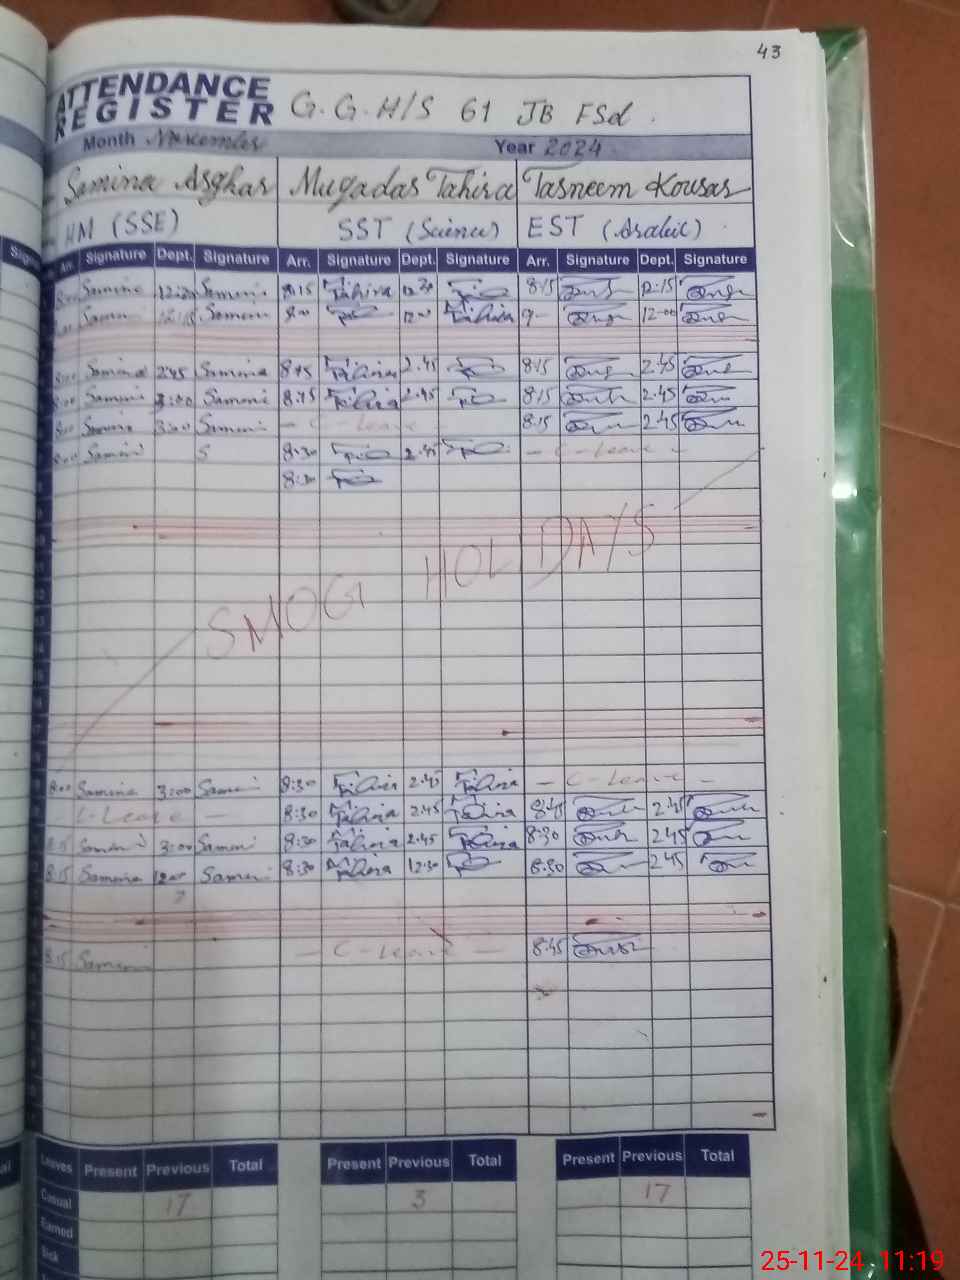 43
ATTENDANCE
REGISTER G.G.H/S 61 JB FSd.
Month November Year 2024
Samina Asghar Muqadas Tahira Tasneem Kousar
HM (SSE) SST (Science) EST (Arabic)
Arr. Signature Dept. Signature Arr. Signature Dept. Signature Arr. Signature Dept. Signature
8:00 Samina 12:30 Samina 8:15 Tahira 12:30 8:15 12:15
Samina 12:15 Samina 8:00 12:00 Tahira 9- 12:00
8:00 Samina 2:45 Samina 8:15 Tahira 2:45 8:15 2:45
8:00 Samina 3:00 Samina 8:15 Tahira 2:45 8:15 2:45
8:00 Samina 3:00 Samina - C-Leave - 8:15 2:45
8:00 Samina S 8:30 2:45 - C-Leave -
8:30
SMOG HOLIDAYS
8:00 Samina 3:00 Samina 8:30 Tahira 2:45 Tahira - C-Leave -
C-Leave - 8:30 Tahira 2:45 Tahira 8:45 2:45
8:15 Samina 3:00 Samina 8:30 Tahira 2:45 Tahira 8:30 2:45
8:15 Samina 12:00 Samina 8:30 Tahira 12:30 8:30 2:45
8:15 Samina - C-Leave - 8:45
Leaves Present Previous Total Present Previous Total Present Previous Total
Casual 17 3 17
Earned
Sick
25-11-24 11:19